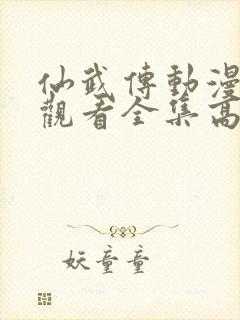 仙武傳動漫
觀看全集高
妖童童